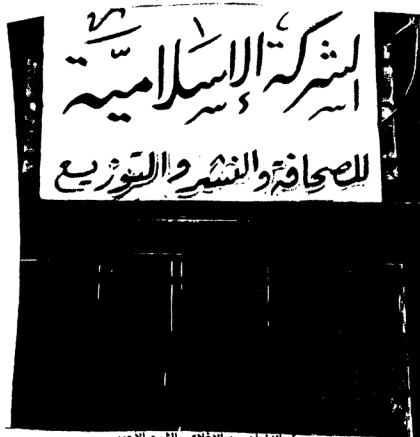 الشركة الإسلامية
للصحافة والنشر والتوزيع